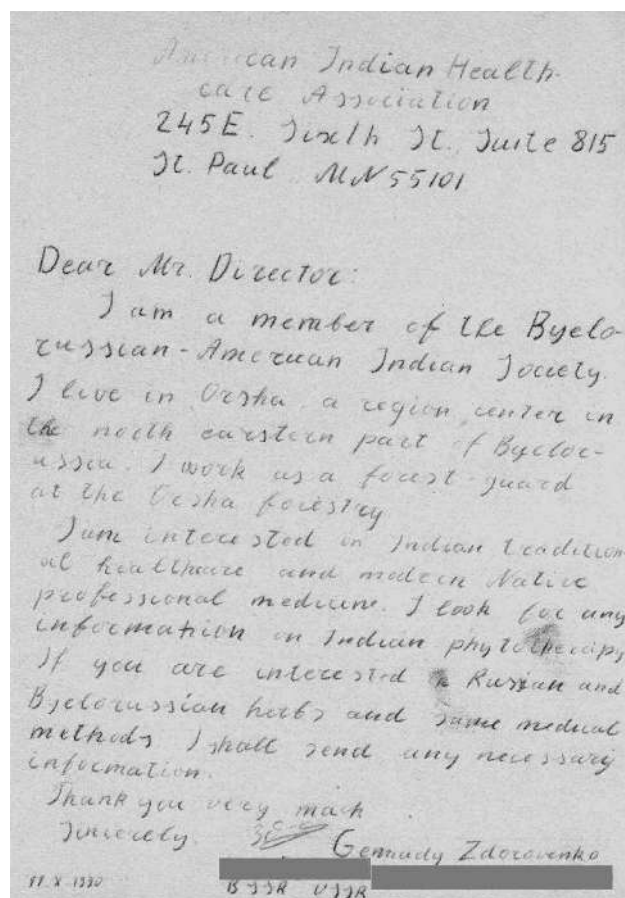 American Indian Health-
care Association
245 E. Sixth St. Suite 815
St. Paul MN 55101
Dear Mr. Director:
I am a member of the Byelo-
russian-American Indian Society.
I live in Orsha, a region center in
the north earstern part of Byelor-
ussia. I work as a forest-guard
at the Orsha forestry
I am interested in Indian tradition-
al healthcare and modern Native
professional medicine. I look for any
information on Indian phytotherapy
If you are interested in Russian and
Byelorussian herbs and some medical
methods I shall send any necessary
information.
Thank you very mach
Sincerely.
Gennady Zdorovenko
BSSR USSR
11.X.1990